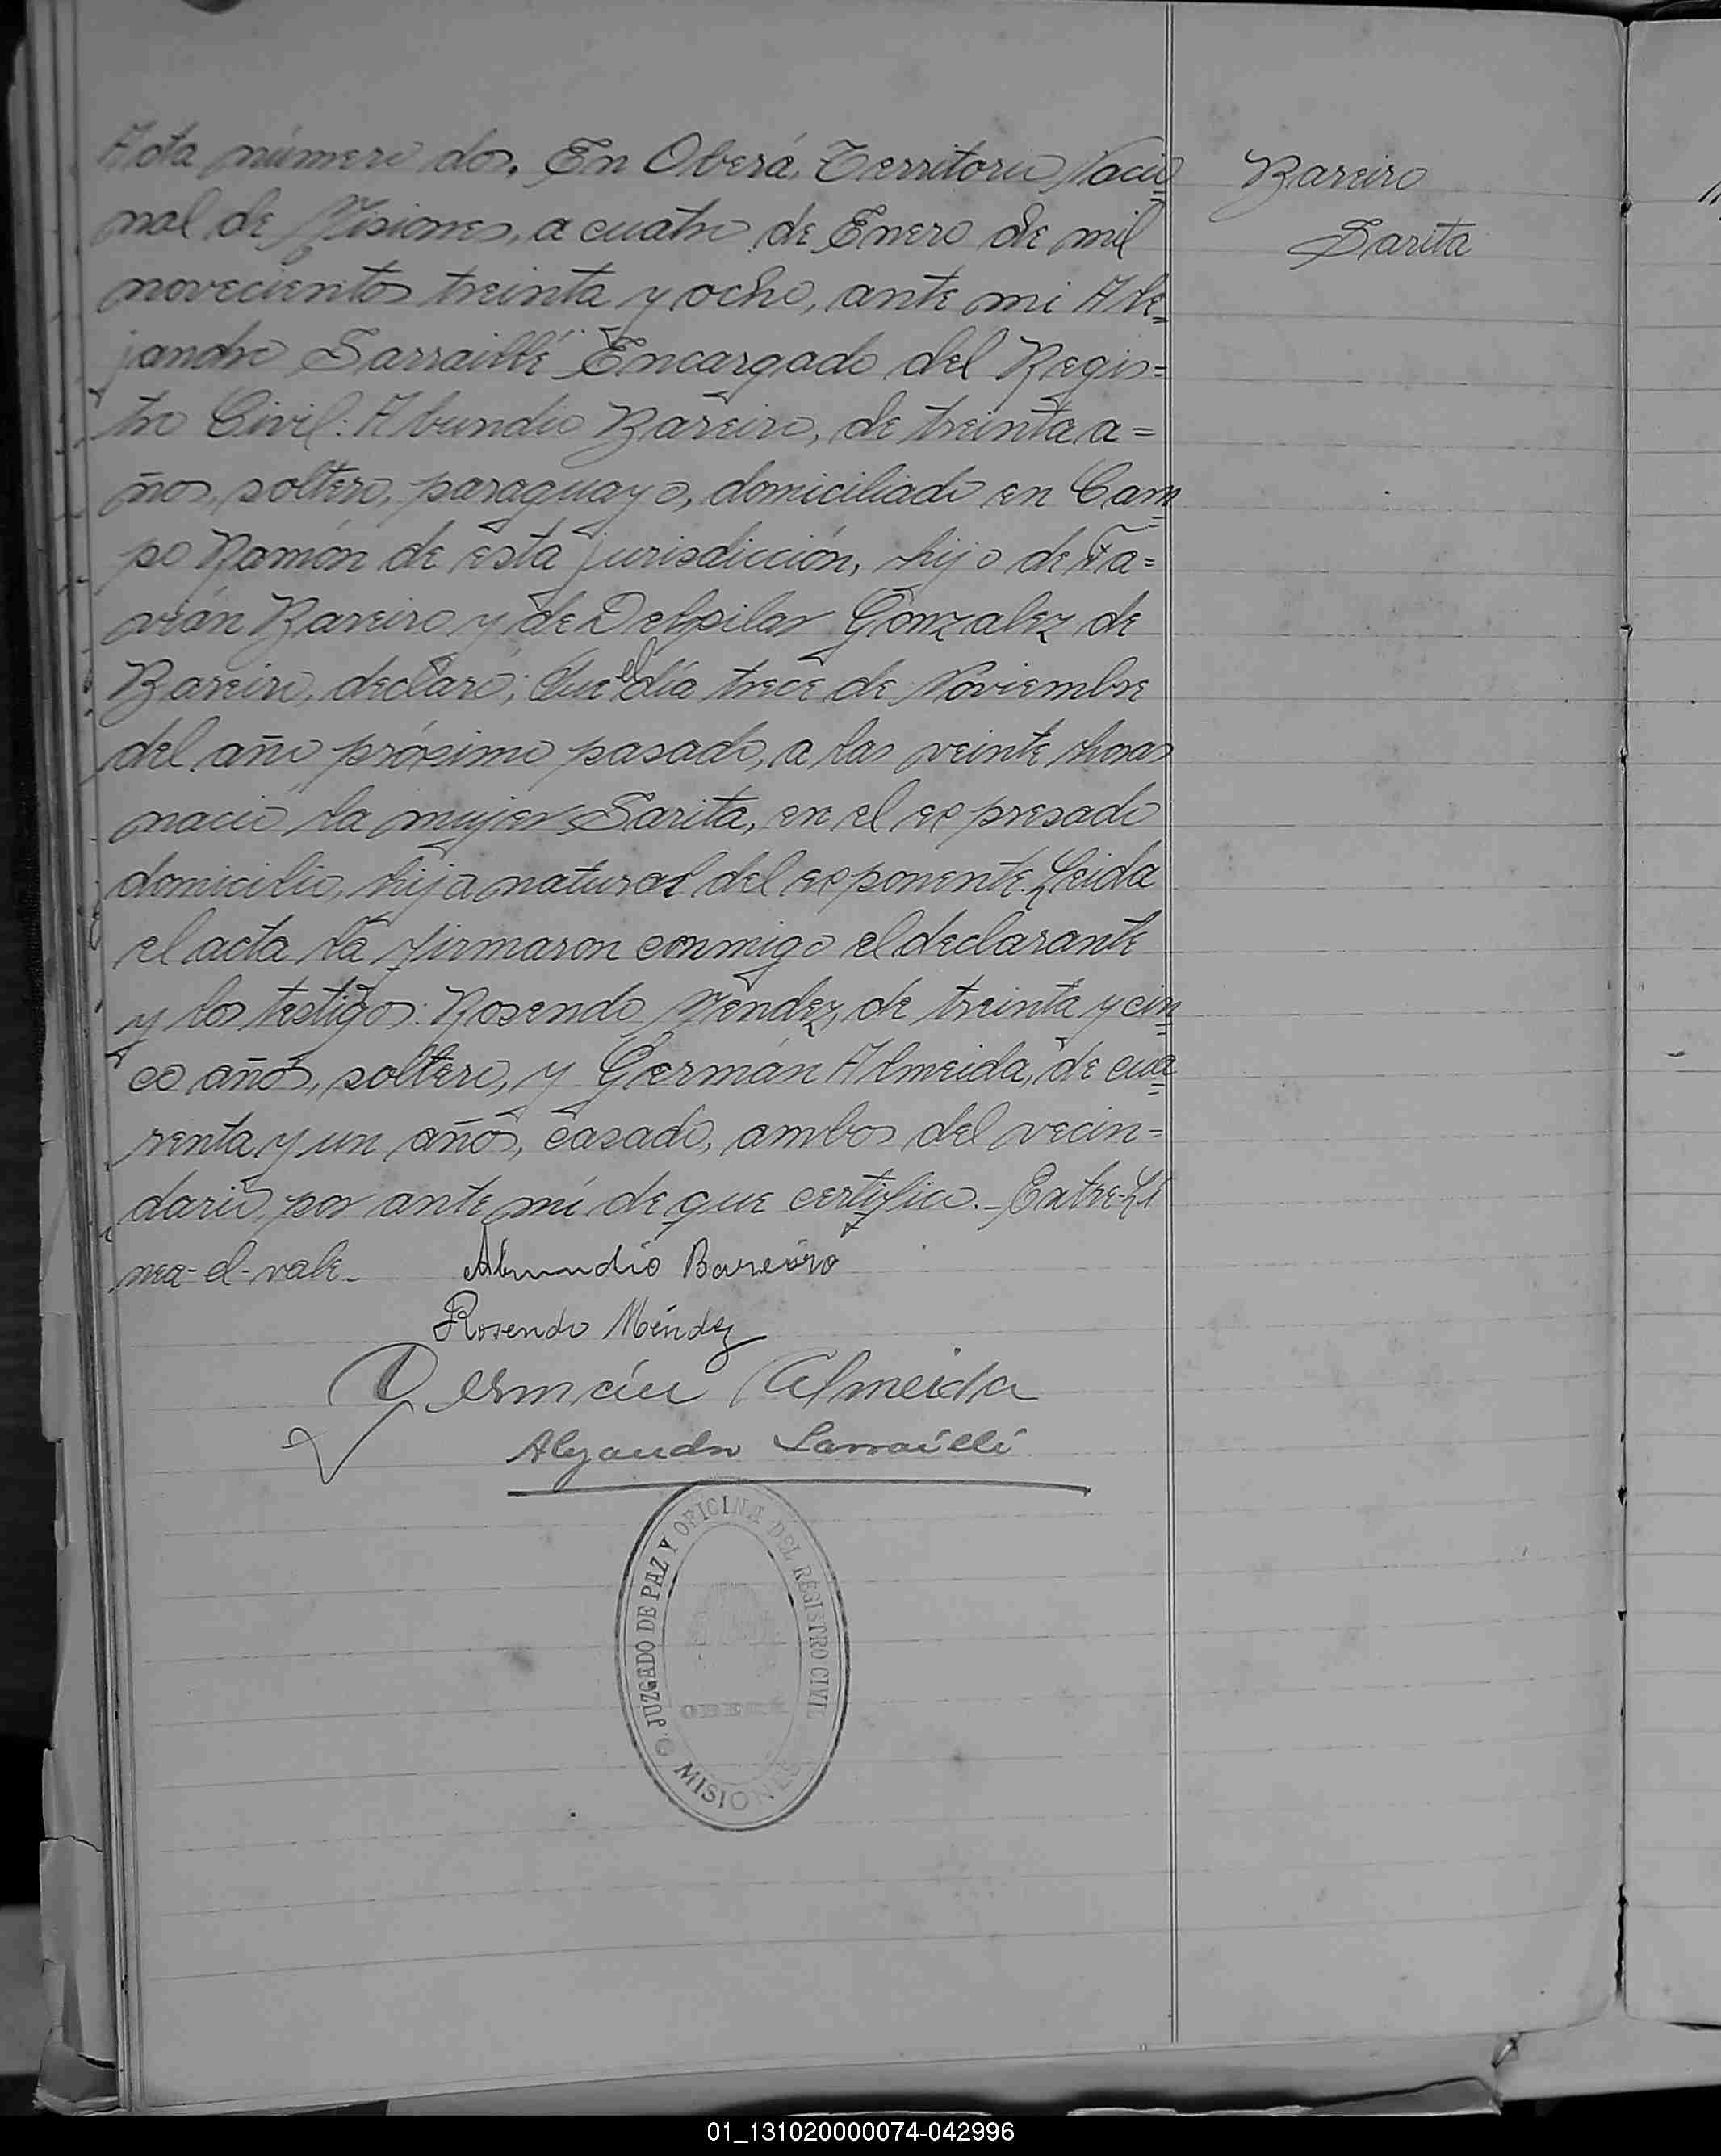 Acta número dos. En Oberá, Territorio Nacio=
nal de Misiones, a cuatro de Enero de mil
novecientos treinta y ocho, ante mi Ale=
jandro Sarraillé Encargado del Regis=
tro Civil: Abundio Bareiro, de treinta a=
ños, soltero, paraguayo, domiciliado en Cam=
po Ramón de esta jurisdicción, hijo de Fa=
vián Bareiro y de Delpilar Gonzalez de
Bareiro, declaró; Que el día trece de Noviembre
del año próximo pasado, a las veinte horas
nació la mujer Sarita, en el expresado
domicilio, hija natural del exponente. Leida
el acta la firmaron conmigo el declarante
y los testigos: Rosendo Méndez, de treinta y cin=
co años, soltero, y Germán Almeida, de cua=
renta y un años, casado, ambos del vecin=
dario, por ante mí de que certifico.- Entre-Lí
nea-el-vale-
Abundio Bareiro
Rosendo Méndez
Germán Almeida
Alejandro Sarraillé
JUZGADO DE PAZ Y OFICINA DEL REGISTRO CIVIL
OBERÁ
MISIONES
Bareiro
Sarita
01_131020000074-042996